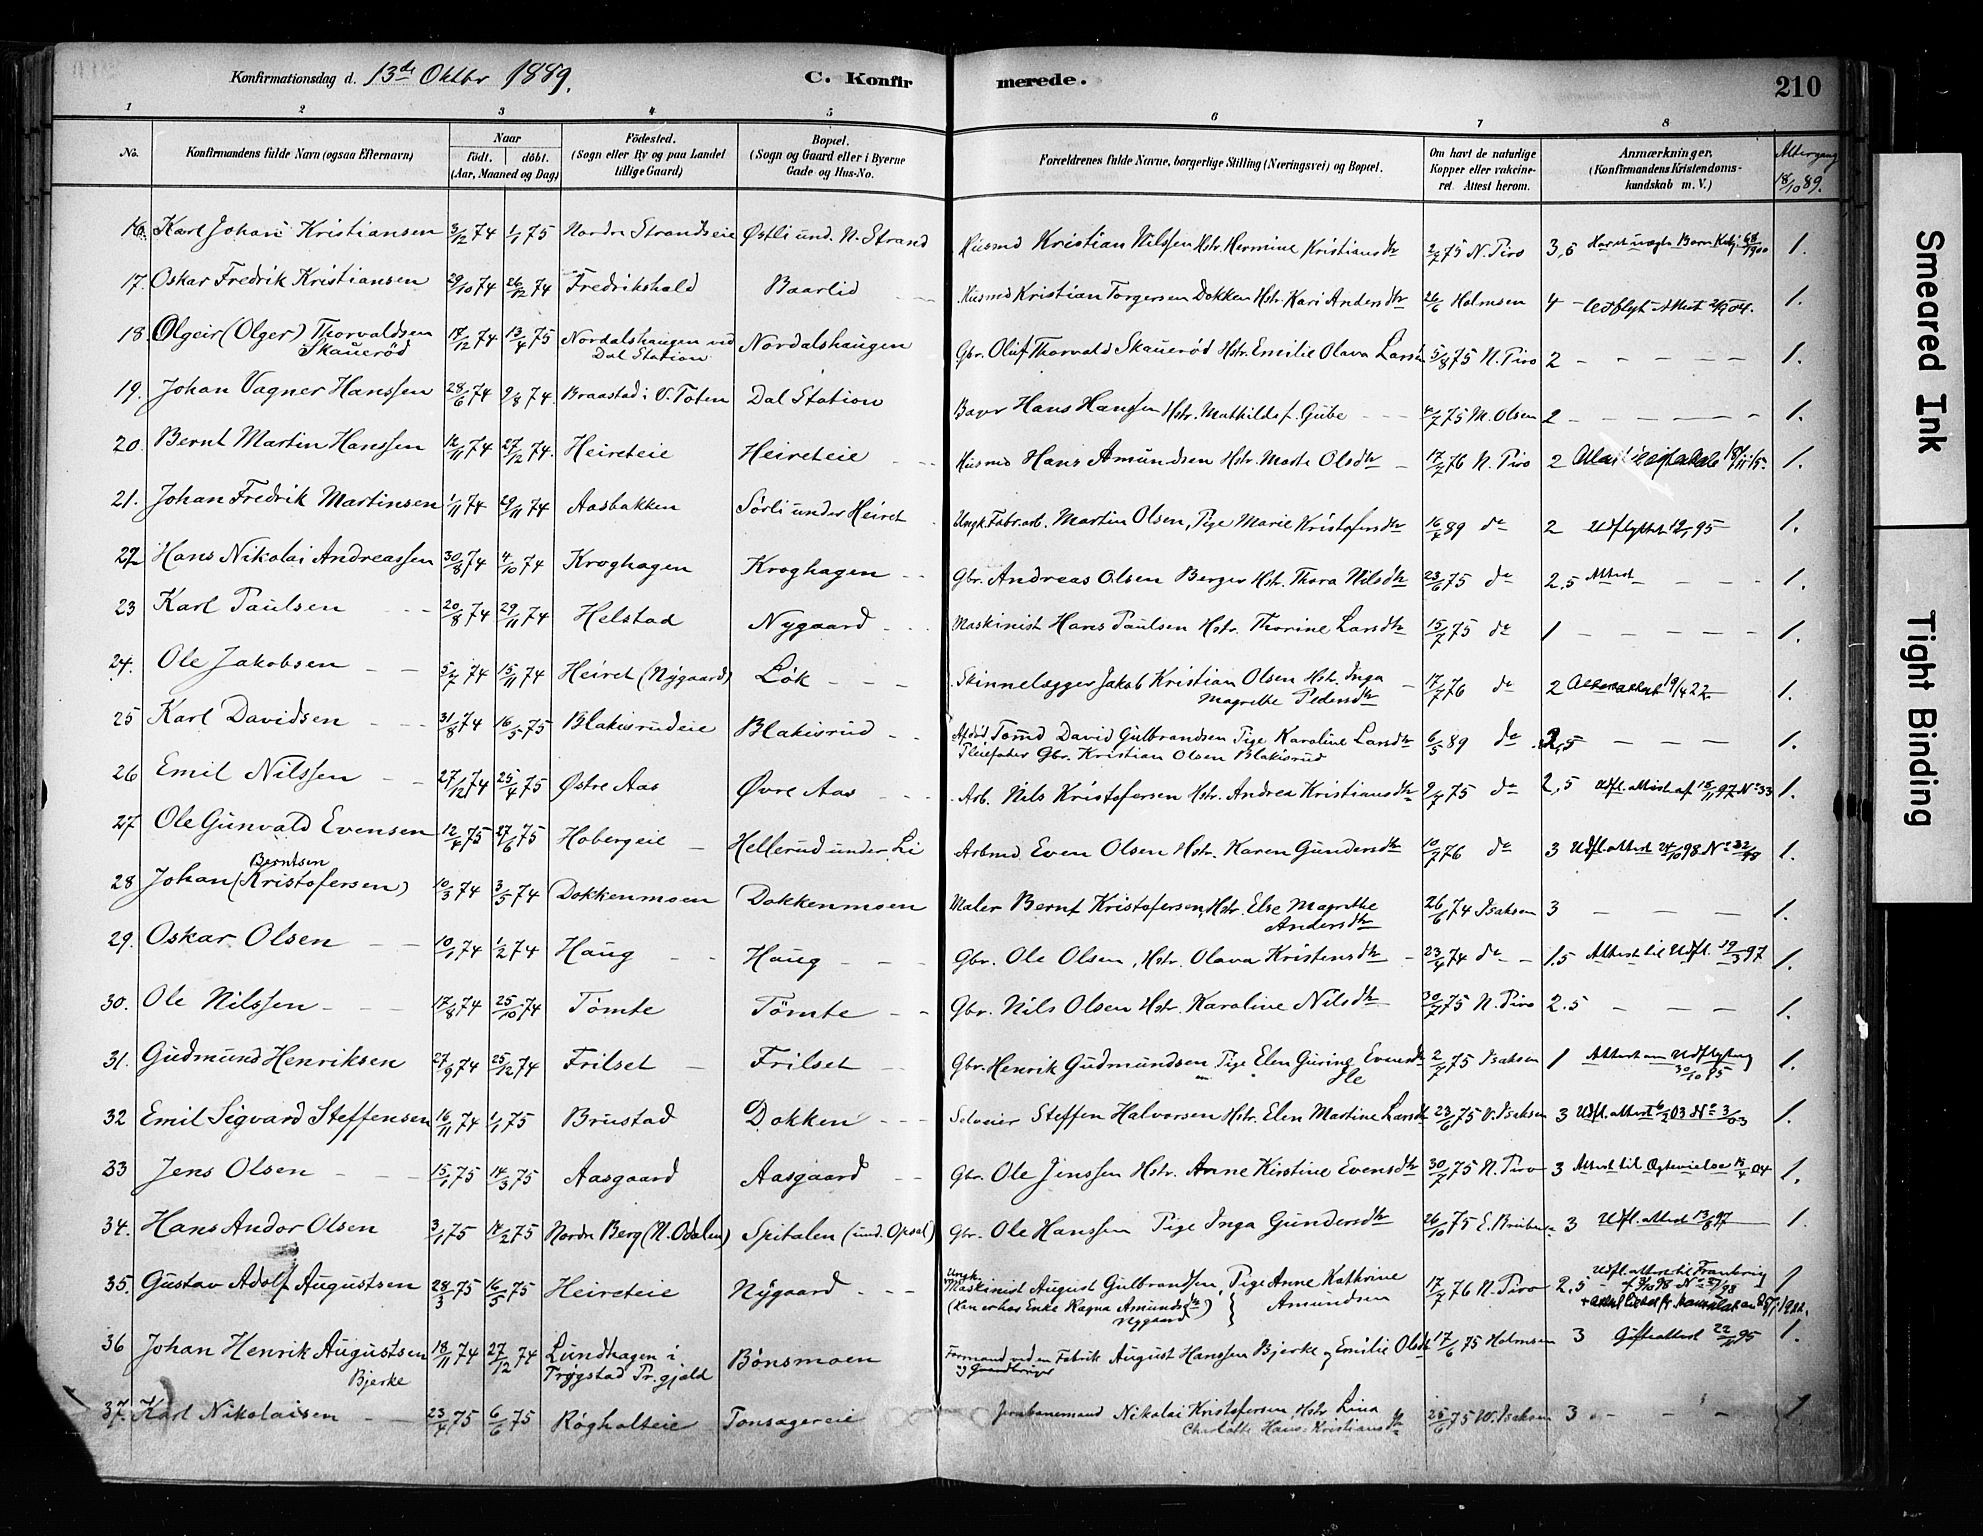 Konfirmationsdag d. 13de Oktbr 1889.
C. Konfirmerede.
210
1 2 3 4 5 6 7 8
No. Konfirmandens fulde Navn (ogsaa Efternavn) Naar født. døbt. (Aar, Maaned og Dag) Födested. (Sogn eller By og paa Landet tillige Gaard) Bopæl. (Sogn og Gaard eller i Byerne Gade og Hus-No. Forældrenes fulde Navne, borgerlige Stilling (Næringsvei) og Bopæl. Om havt de naturlige Kopper eller vakcineret. Attest herom. Anmærkninger. (Konfirmandens Kristendomskundskab m. V.) Altergang 18/10 89.
16. Karl Johan Kristiansen 3/12 74 1/1 75 Nordre Strandseie Østli und. N. Strand Husmd Kristian Nilssen Hstr. Hermine Kristiansdtr 2/7 75 N. Piro 3,5 1.
17. Oskar Fredrik Kristiansen 29/10 74 26/12 74 Fredrikshald Baarlid Husmd Kristian Torgersen Dokken Hstr. Kari Andersdtr 26/6 Holmsen 4 - Udflyt. Attest 2/9 04. 1.
18. Olgeir (Olger) Thorvaldsen Skauerød 17/12 74 13/4 75 Nordalshaugen ved Dal Station Nordalshaugen Gbr. Oluf Thorvald Skauerød Hstr. Emilie Olava Larsdtr 5/8 75 N. Piro 2 - - - - - 1.
19. Johan Vagner Hanssen 28/6 74 9/8 74. Braastad i V. Toten Dal Station Bager Hans Hanssen Hstr. Mathilde f. Gube 4/7 75 M. Olsen 2 - - - - - 1.
20. Bernt Martin Hanssen 12/11 74 27/12 74. Heireteie Heireteie Husmd Hans Amundsen Hstr. Marte Olsdtr 17/7 76 N. Piro 2 1.
21. Johan Fredrik Martinsen 1/11 74 29/11 74 Aasbakken Sørli under Heiret Ungk. Fabr.arb. Martin Olsen, Pige Marie Kristofersdtr 16/4 89 do 2 Udflyttet 12/1 95 1.
22 Hans Nikolai Andreassen 30/8 74 4/10 74 Kroghagen Kroghagen Gbr. Andreas Olsen Berger Hstr. Thora Nilsdtr 23/6 75 do 2,5 Attest - - - 1.
23 Karl Paulsen 20/8 74 29/11 74 Helstad Nygaard Maskinist Hans Paulsen Hstr. Thorine Larsdtr 15/7 75 do 1 - - - - - 1.
24. Ole Jakobsen 5/7 74 15/11 74 Heiret (Nygaard) Løk Skinnelægger Jakob Kristian Olsen Hstr. Inga Magrethe Pedersdtr 17/7 76 do 2 19/4 22. 1.
25 Karl Davidsen 31/8 74 16/5 75 Blakisrudeie Blakisrud Afdød Tømd David Gulbrandsen Pige Karoline Larsdtr
Pleiefader Gbr. Kristian Olsen Blakisrud 6/5 89 do 2,5 - - - 1.
26 Emil Nilssen 27/12 74 25/4 75 Østre Aas Øvre Aas Arb. Nils Kristofersen Hstr. Andrea Kristiansdtr 2/7 75 do 2,5 Udfl. attest af 18/11 97 No 33 1.
27 Ole Gunvald Evensen 12/4 75 27/6 75 Hobergeie Hellerud under Li Arbmd. Even Olsen Hstr. Karen Gundersdtr 10/7 76 do 3 Udfl. attest 24/10 98 No 32/98 1.
28 Johan Berntsen (Kristofersen) 10/3 74 3/5 74 Dokkenmoen Dokkenmoen Maler Bernt Kristofersen, Hstr. Else Magrethe Andersdtr 26/6 74 Isaksen 3 - - - 1.
29. Oskar Olsen 10/1 74 1/2 74 Haug Haug Gbr. Ole Olsen, Hstr. Olava Kristensdtr 23/4 74 do 1.5 Attest til Udfl. 19/3 97 1.
30. Ole Nilssen 17/8 74 25/10 74 Tømte Tømte Gbr. Nils Olsen Hstr. Karoline Nilsdtr 30/7 75 N. Piro 2.5 - - - 1.
31. Gudmund Henriksen 27/9 74 25/12 74 Frilset Frilset Gbr. Henrik Gudmundsen Pige Elen Guring Evensdtr 2/7 75 Isaksen 1 Attest om Udflytng 30/10 95 1.
32 Emil Sigvard Steffensen 16/11 74 1/1 75 Brustad Dokken Selveier Steffen Halvorsen Hstr. Elen Martine Larsdtr 23/6 75 V. Isaksen 3 Udfl. attest 6/2 03 No 3/03 1.
33 Jens Olsen 15/1 75 14/3 75 Aasgaard Aasgaard Gbr. Ole Jenssen Hstr. Anne Kirstine Evensdtr 30/7 75 N. Piro 3 Attest til Ægtevielse 15/4 04 1.
34. Hans Andor Olsen 3/1 75 14/2 75 Nordre Berg (N. Odalen) Spitalen (und. Opsal) Gbr. Ole Hanssen Pige Inga Gundersdtr 26/10 75 3 Udfl. attest 13/8 97 1.
35. Gustav Adolf Augustsen 28/3 75 16/5 75 Heireteie Nygaard Ungk. Maskinist August Gulbrandsen, Pige Anne Kathrine Amundsen
(Han er hos Enke Ragna Amundsdtr Nygaard) 17/7 76 N. Piro 2,5 1
36 Johan Henrik Augustsen Bjerke 18/11 74 27/12 74 Lundhagen i Trøgstad Pr.gjeld Bønsmoen Formand ved en Fabrik August Hanssen Bjerke og Emilie Olsdtr 17/6 75 Holmsen 3 Gifteattest 22/11 95 1.
37. Karl Nikolaisen 23/4 75 6/6 75 Røgholteie Tonsagereie Jernbanemand Nikolai Kristofersen, Hstr Lina Charlotte Hans-Kristiansdtr 25/6 75 V. Isaksen 3 - - - 1
Smeared Ink
Tight Binding